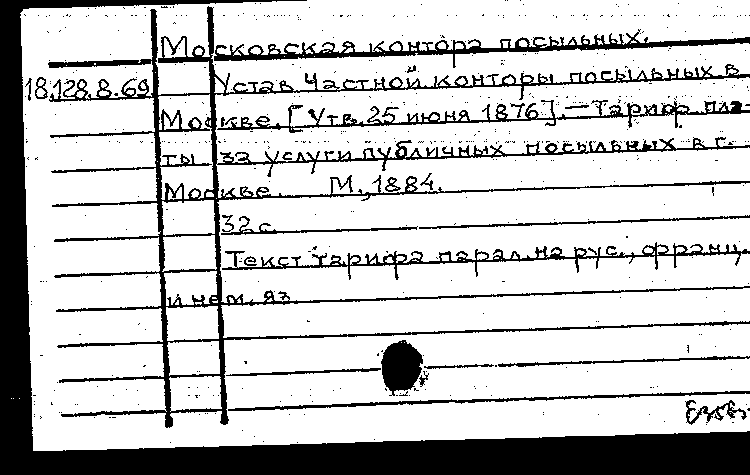 Московская контора посыльных.
18.128.8.69 Устав Частной конторы посыльных в
Москве. [Утв. 25 июня 1876]. — Тариф пла-
ты за услуги публичных посыльных в г.
Москве. М., 1884.
32 с.
Текст тарифа парал. на рус., франц.
и нем. яз.